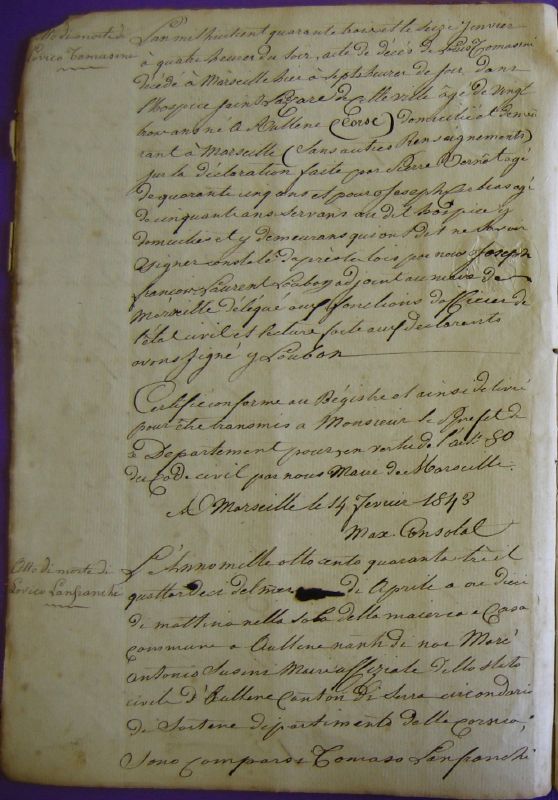 Atto di morte di
Lovico Tomasini
L'an mil huit cent quarante trois et le seize Jenvier
à quatre heures du soir, acte de décès de Louis Tomasini
décédé à Marseille hier a sept heures de soir dans
l'hospice saint Lazare de cette ville âgé de vingt
trois ans né à Aullene (Corse) domicilié et demeu
rant à Marseille (Sans autres Renseignements)
sur la déclaration faite par Pierre Bernet agé
de quarante cinq ans et pour Joseph agé
de cinquante ans servans au dit hospice y
domiciliés et y demeurans qui ont dit ne savoir
signer constaté d'après la loi par nous Joseph
francois Laurent Loubon adjoint au maire de
Marseille délégué aux fonctions d'officier de
l'état civil et lecture faite aux declarants
avons signé y Loubon
Certifié conforme au Régistre et ainsi delivré
pour être transmis a Monsieur le Prefet de
Departement pour en vertu de l'art. 80
du Code civil par nous Maire de Marseille.
A Marseille le 14 fevrier 1843
Max Consolat
Atto di morte di
Lovico Lanfranchi
L'Anno mille otto cento quaranta tre il
quattordeci del mese di Aprile a ore dieci
di mattina nella sala della maeria e Casa
commune a Aullene nanti di noi Marc'
Antonio Susini Maire offiziale dello stato
civile d'Aullene Canton di Serra circondario
di Sartene dipartimento della Corsica,
Sono comparsi Tomaso Lanfranchi